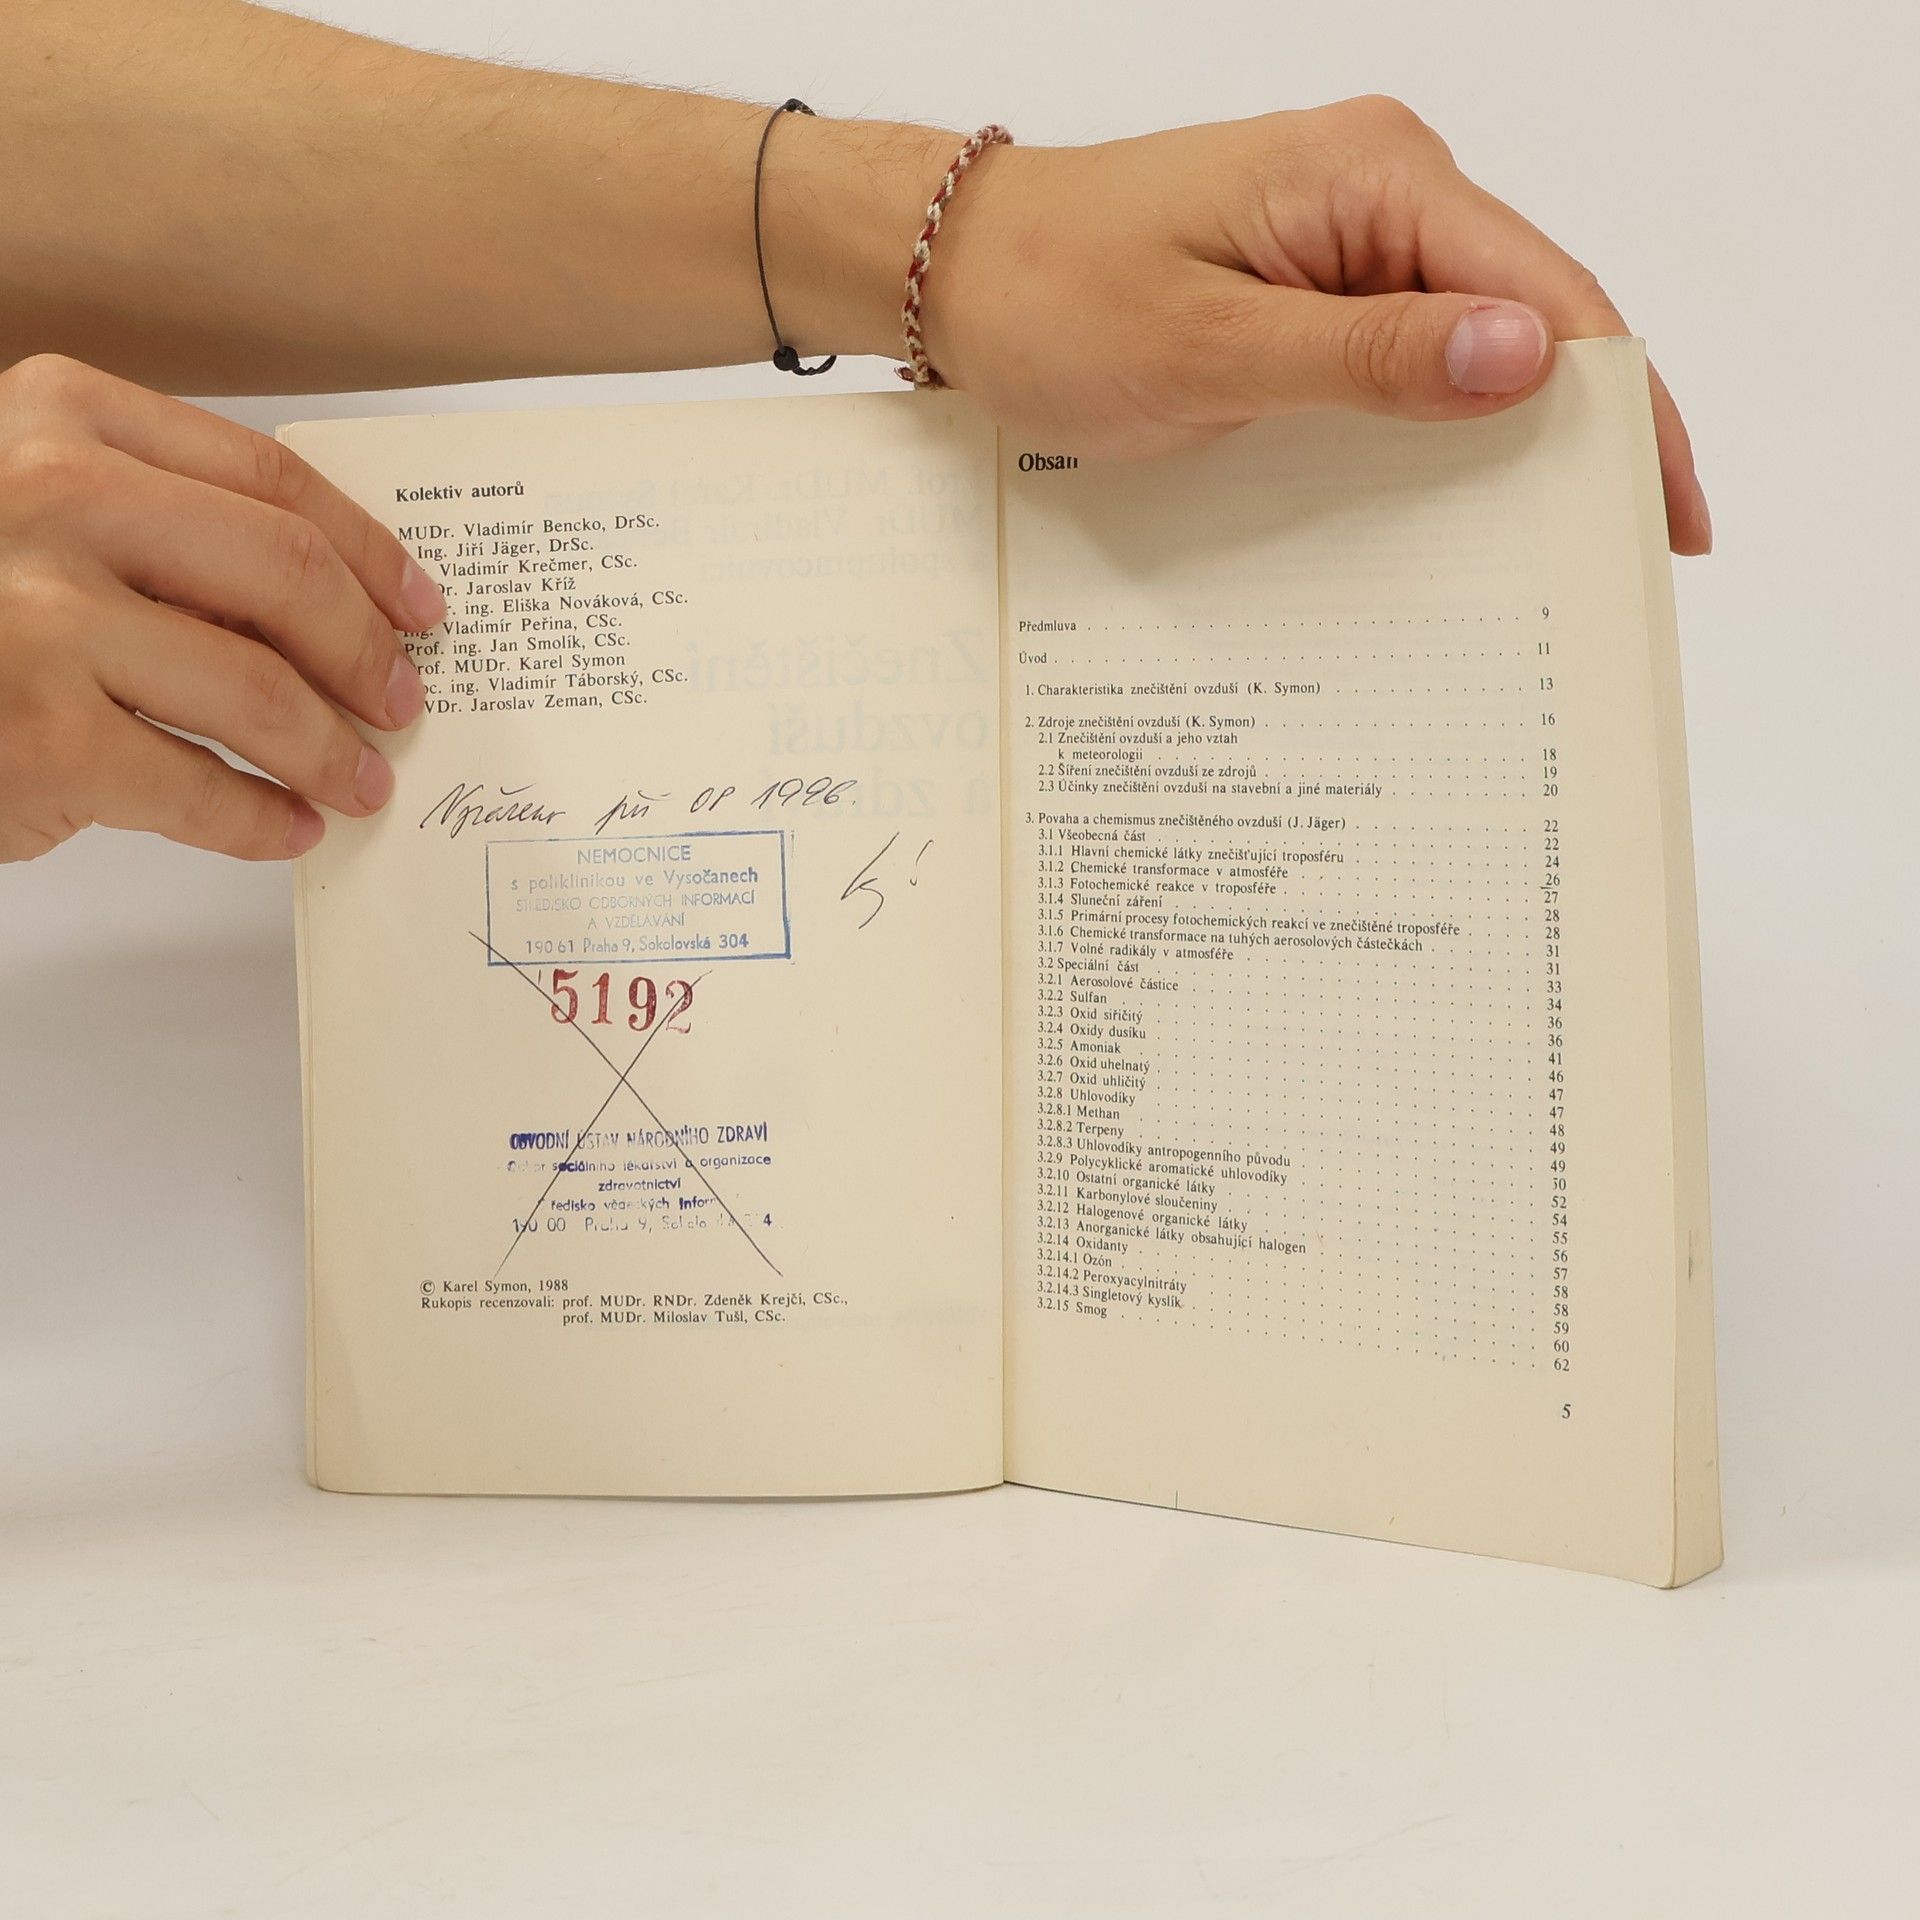 Kolektiv autorů
MUDr. Vladimír Bencko, DrSc.
Ing. Jiří Jäger, DrSc.
Vladimír Krečmer, CSc.
Jaroslav Kříž
ing. Eliška Nováková, CSc.
Ing. Vladimír Peřina, CSc.
Prof. ing. Jan Smolík, CSc.
Prof. MUDr. Karel Symon
ing. Vladimír Táborský, CSc.
Jaroslav Zeman, CSc.
při OP 1996.
NEMOCNICE
s poliklinikou ve Vysočanech
STŘEDISKO ODBORNÝCH INFORMACÍ
A VZDĚLÁVÁNÍ
190 61 Praha 9, Sokolovská 304
5192
OBVODNÍ ÚSTAV NÁRODNÍHO ZDRAVÍ
sociálního lékařství a organizace
zdravotnictví
vědeckých
190 00 Praha 9,
© Karel Symon, 1988
Rukopis recenzovali: prof. MUDr. RNDr. Zdeněk Krejčí, CSc.,
prof. MUDr. Miloslav Tušl, CSc.
Obsah
Předmluva . . . 9
Úvod . . . 11
1. Charakteristika znečištění ovzduší (K. Symon) . . . 13
2. Zdroje znečištění ovzduší (K. Symon) . . . 16
2.1 Znečištění ovzduší a jeho vztah
k meteorologii . . . 18
2.2 Šíření znečištění ovzduší ze zdrojů . . . 19
2.3 Účinky znečištění ovzduší na stavební a jiné materiály . . . 20
3. Povaha a chemismus znečištěného ovzduší (J. Jäger) . . . 22
3.1 Všeobecná část . . . 22
3.1.1 Hlavní chemické látky znečišťující troposféru . . . 24
3.1.2 Chemické transformace v atmosféře . . . 26
3.1.3 Fotochemické reakce v troposféře . . . 27
3.1.4 Sluneční záření . . . 28
3.1.5 Primární procesy fotochemických reakcí ve znečištěné troposféře . . . 28
3.1.6 Chemické transformace na tuhých aerosolových částečkách . . . 31
3.1.7 Volné radikály v atmosféře . . . 31
3.2 Speciální část . . . 33
3.2.1 Aerosolové částice . . . 34
3.2.2 Sulfan . . . 36
3.2.3 Oxid siřičitý . . . 36
3.2.4 Oxidy dusíku . . . 41
3.2.5 Amoniak . . . 46
3.2.6 Oxid uhelnatý . . . 47
3.2.7 Oxid uhličitý . . . 47
3.2.8 Uhlovodíky . . . 48
3.2.8.1 Methan . . . 49
3.2.8.2 Terpeny . . . 49
3.2.8.3 Uhlovodíky antropogenního původu . . . 50
3.2.9 Polycyklické aromatické uhlovodíky . . . 52
3.2.10 Ostatní organické látky . . . 54
3.2.11 Karbonylové sloučeniny . . . 55
3.2.12 Halogenové organické látky . . . 56
3.2.13 Anorganické látky obsahující halogen . . . 57
3.2.14 Oxidanty . . . 58
3.2.14.1 Ozón . . . 58
3.2.14.2 Peroxyacylnitráty . . . 59
3.2.14.3 Singletový kyslík . . . 60
3.2.15 Smog . . . 62
5